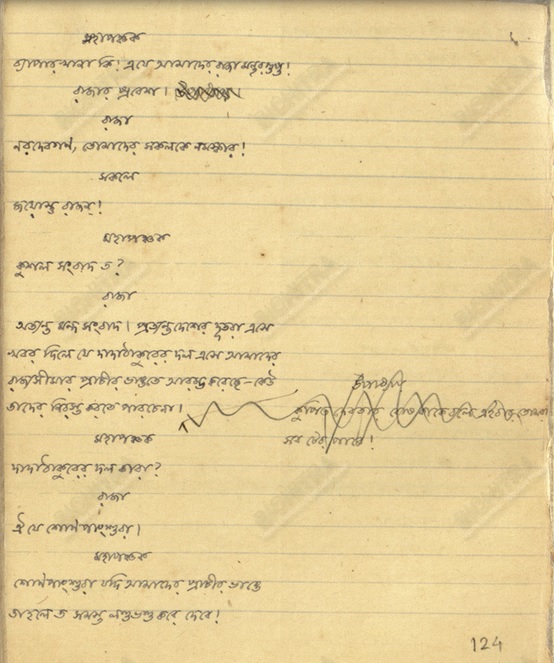 মহাপঞ্চক
ব্যাপারখানা কি! এযে আমাদের রাজা মন্থরগুপ্ত!
রাজার প্রবেশ।
রাজা
নরদেবগণ, তোমাদের সকলকে নমস্কার!
সকলে
জয়োস্তু রাজন্!
মহাপঞ্চক
কুশল সংবাদ ত?
রাজা
অত্যন্ত মন্দ সংবাদ। প্রত্যন্তদেশের দূতেরা এসে
খবর দিলে যে দাদাঠাকুরের দল এসে আমাদের
রাজ্যসীমার প্রাচীর ভাঙতে আরম্ভ করেছে—কেউ
তাদের নিরস্ত করতে পারচেনা।
উপাধ্যায়
সব টের পাবে!
মহাপঞ্চক
দাদাঠাকুরের দল কারা?
রাজা
ঐ যে শোণপাংশুরা।
মহাপঞ্চক
শোণপাংশুরা যদি আমাদের প্রাচীর ভাঙে
তাহলে ত সমস্ত লণ্ডভণ্ড করে দেবে!
124
BICHITRA